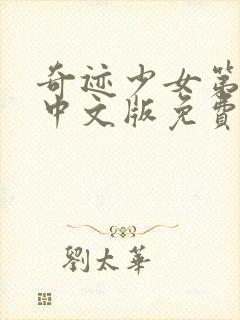 奇迹少女第
中文版免費
劉太華